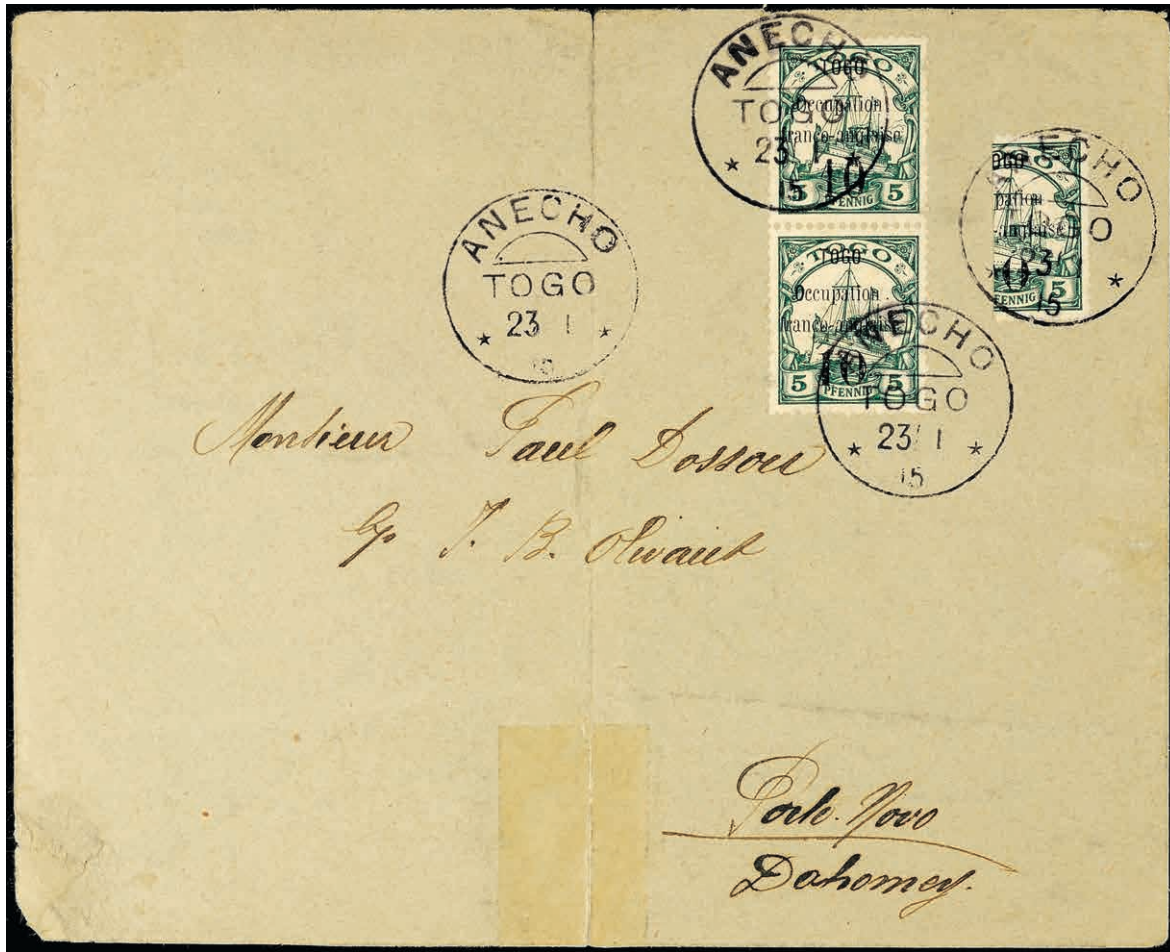 ANECHO
TOGO
23 1
15
TOGO
TOGO
Occupation
franco-anglaise
10
5 PFENNIG 5
ANECHO
TOGO
23 1
15
OGO
pation
-anglaise
0
FENNIG 5
ANECHO
TOGO
23
15
TOGO
TOGO
Occupation
franco-anglaise
10
5 PFENNIG 5
ANECHO
TOGO
23 1
15
Monsieur Paul Dossou
J. B. Olivaint
Porto-Novo
Dahomey.